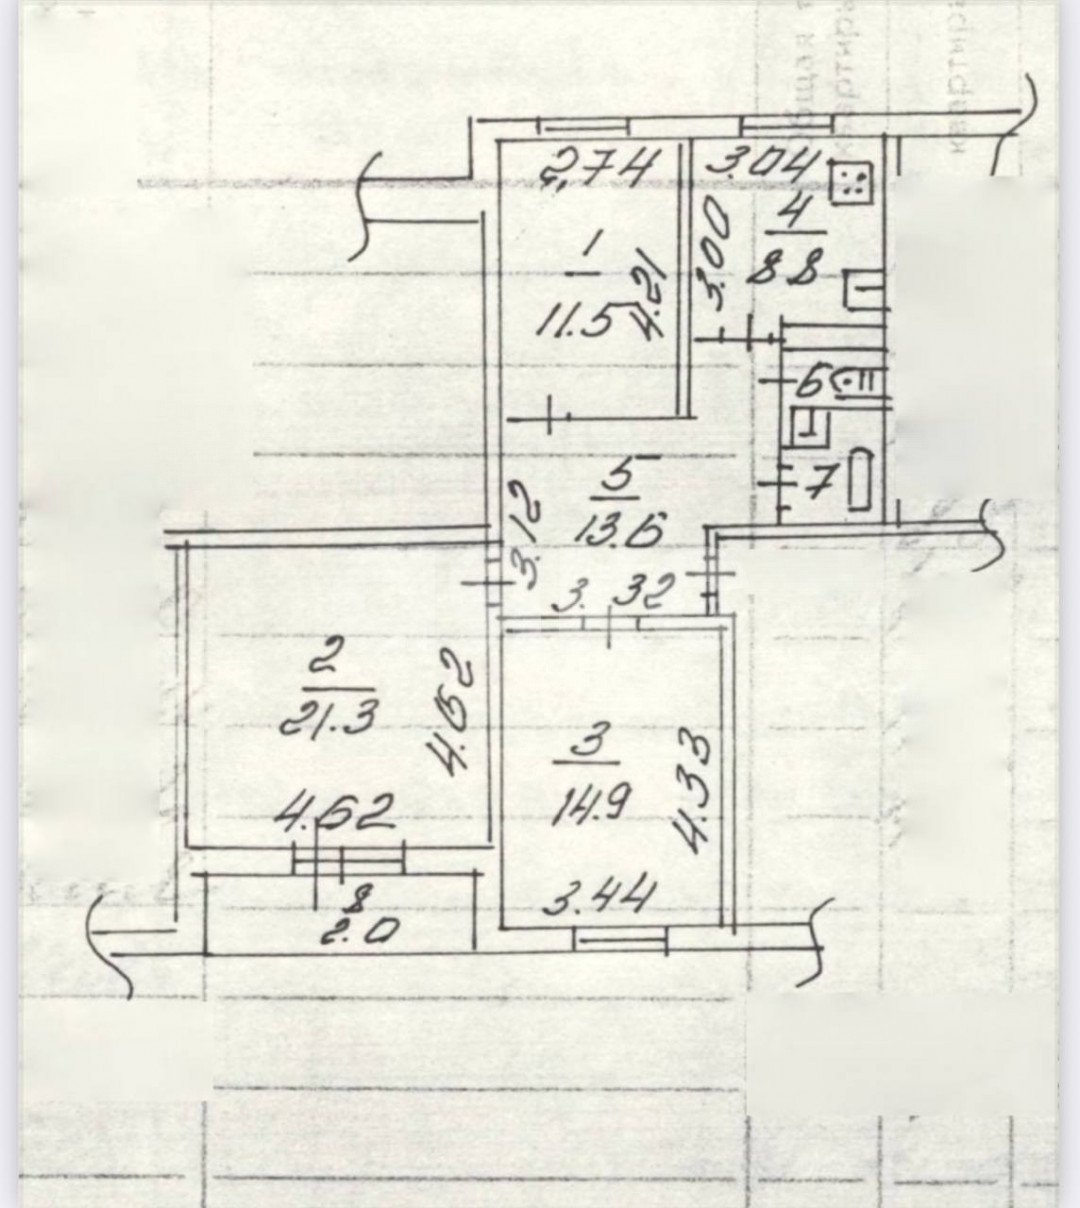 2,74
3.04
1
11.5
4.21
3.00
4
8 8
6
7
5
13.6
3.12
3. 32
2
21.3
4.62
4.62
3
14.9
4.33
3.44
8
2.0